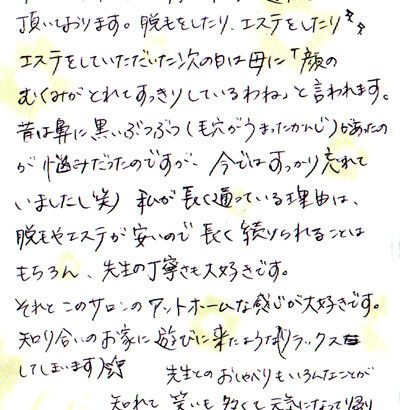 頂いております。脱毛をしたり、エステをしたり
エステをしていただいた次の日は母に「顔の
むくみがとれてすっきりしているわね」と言われます。
昔は鼻に黒いぶつぶつ(毛穴がうまったかんじ)があったの
が悩みだったのですが、今ではすっかり忘れて
いました(笑) 私が長く通っている理由は、
脱毛やエステが安いので長く続けられることは
もちろん、先生の丁寧さも大好きです。
それとこのサロンのアットホームな感じが大好きです。
知り合いのお家に遊びに来たようなリラックス
してしまいます
先生とのおしゃべりもいろんなことが
知れて 笑いも多くて元気になって帰り